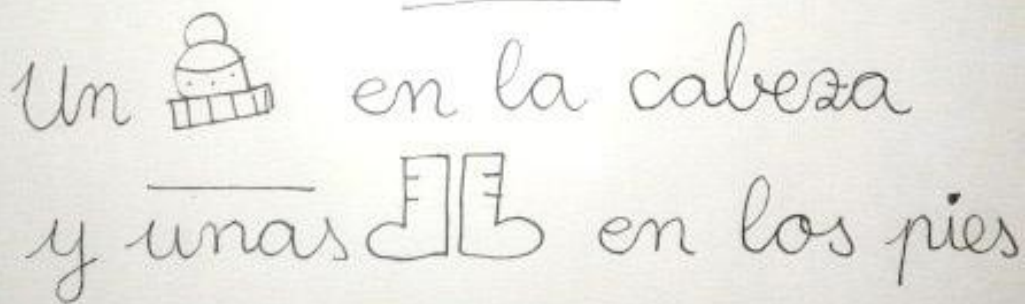 Un en la cabeza
y unas en los pies